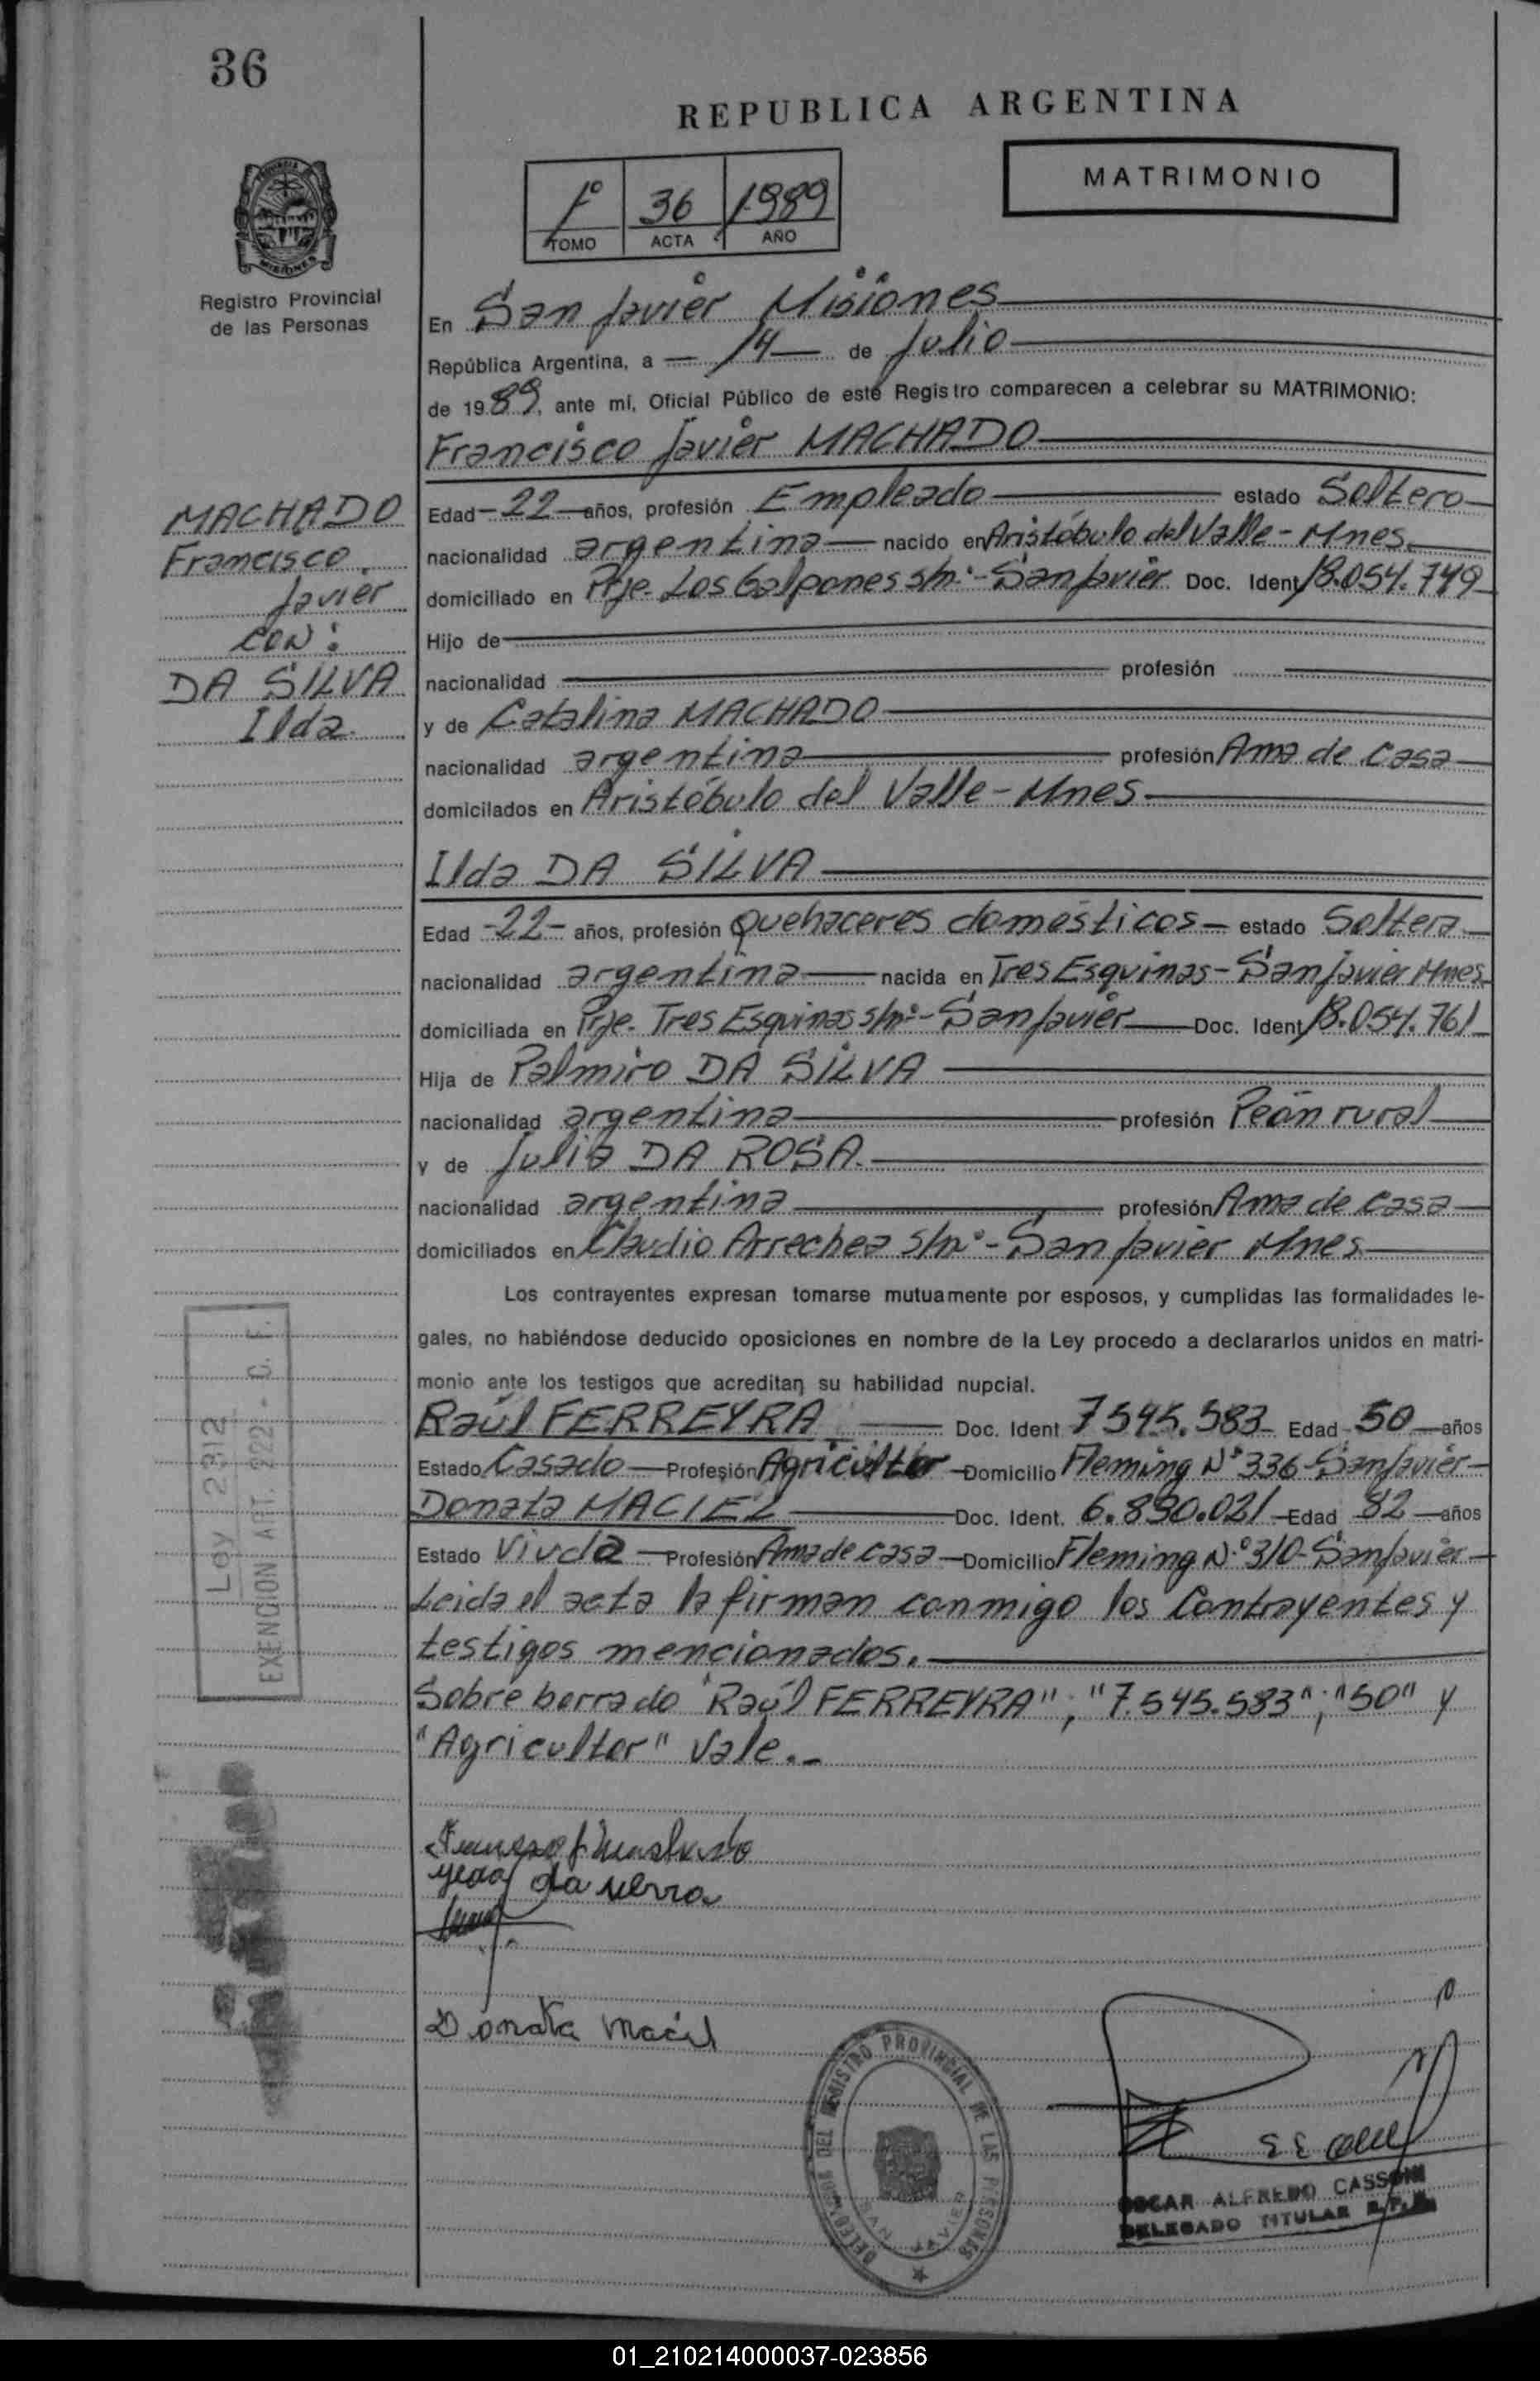 36
REPUBLICA ARGENTINA
MATRIMONIO
1º 36 1989
TOMO ACTA AÑO
PROVINCIA DE
MISIONES
Registro Provincial
de las Personas
En San Javier Misiones
República Argentina, a 14 de Julio
de 1989, ante mí, Oficial Público de este Registro comparecen a celebrar su MATRIMONIO:
Francisco Javier MACHADO
MACHADO
Francisco
Javier
CON:
DA SILVA
Ilda
Edad -22- años, profesión Empleado estado Soltero
nacionalidad argentina nacido en Aristóbulo del Valle - Mnes.
domiciliado en Pje. Los Galpones s/nº - San Javier Doc. Ident 18.054.749
Hijo de
nacionalidad profesión
y de Catalina MACHADO
nacionalidad argentina profesión Ama de casa
domicilados en Aristóbulo del Valle - Mnes
Ilda DA SILVA
Edad -22- años, profesión quehaceres domésticos - estado Soltera
nacionalidad argentina nacida en Tres Esquinas - San Javier Mnes
domiciliada en Pje. Tres Esquinas s/nº - San Javier Doc. Ident 18.054.761
Hija de Palmiro DA SILVA
nacionalidad argentina profesión Peón rural
y de Julia DA ROSA
nacionalidad argentina profesión Ama de casa
domiciliados en Claudio Arrechea s/nº - San Javier Mnes
Los contrayentes expresan tomarse mutuamente por esposos, y cumplidas las formalidades le-
gales, no habiéndose deducido oposiciones en nombre de la Ley procedo a declararlos unidos en matri-
monio ante los testigos que acreditan su habilidad nupcial.
Raúl FERREYRA Doc. Ident 7545.583 Edad 50 años
Estado Casado Profesión Agricultor Domicilio Fleming Nº 336 San Javier
Donata MACIEL Doc. Ident. 6.890.021 Edad 82 años
Estado Viuda Profesión Ama de casa Domicilio Fleming N.º 310 - San Javier
Leida el acta la firman conmigo los Contrayentes y
testigos mencionados.
Sobre borrado "Raúl FERREYRA"; "7.545.583"; "50" y
"Agricultor" Vale.-
Ley 2912
EXENCION ART. 222 - C. F.
Donata Maciel
DELEGACION DEL REGISTRO PROVINCIAL DE LAS PERSONAS
SAN JAVIER
OSCAR ALFREDO CASSONI
DELEGADO TITULAR R.P.P.
01_210214000037-023856